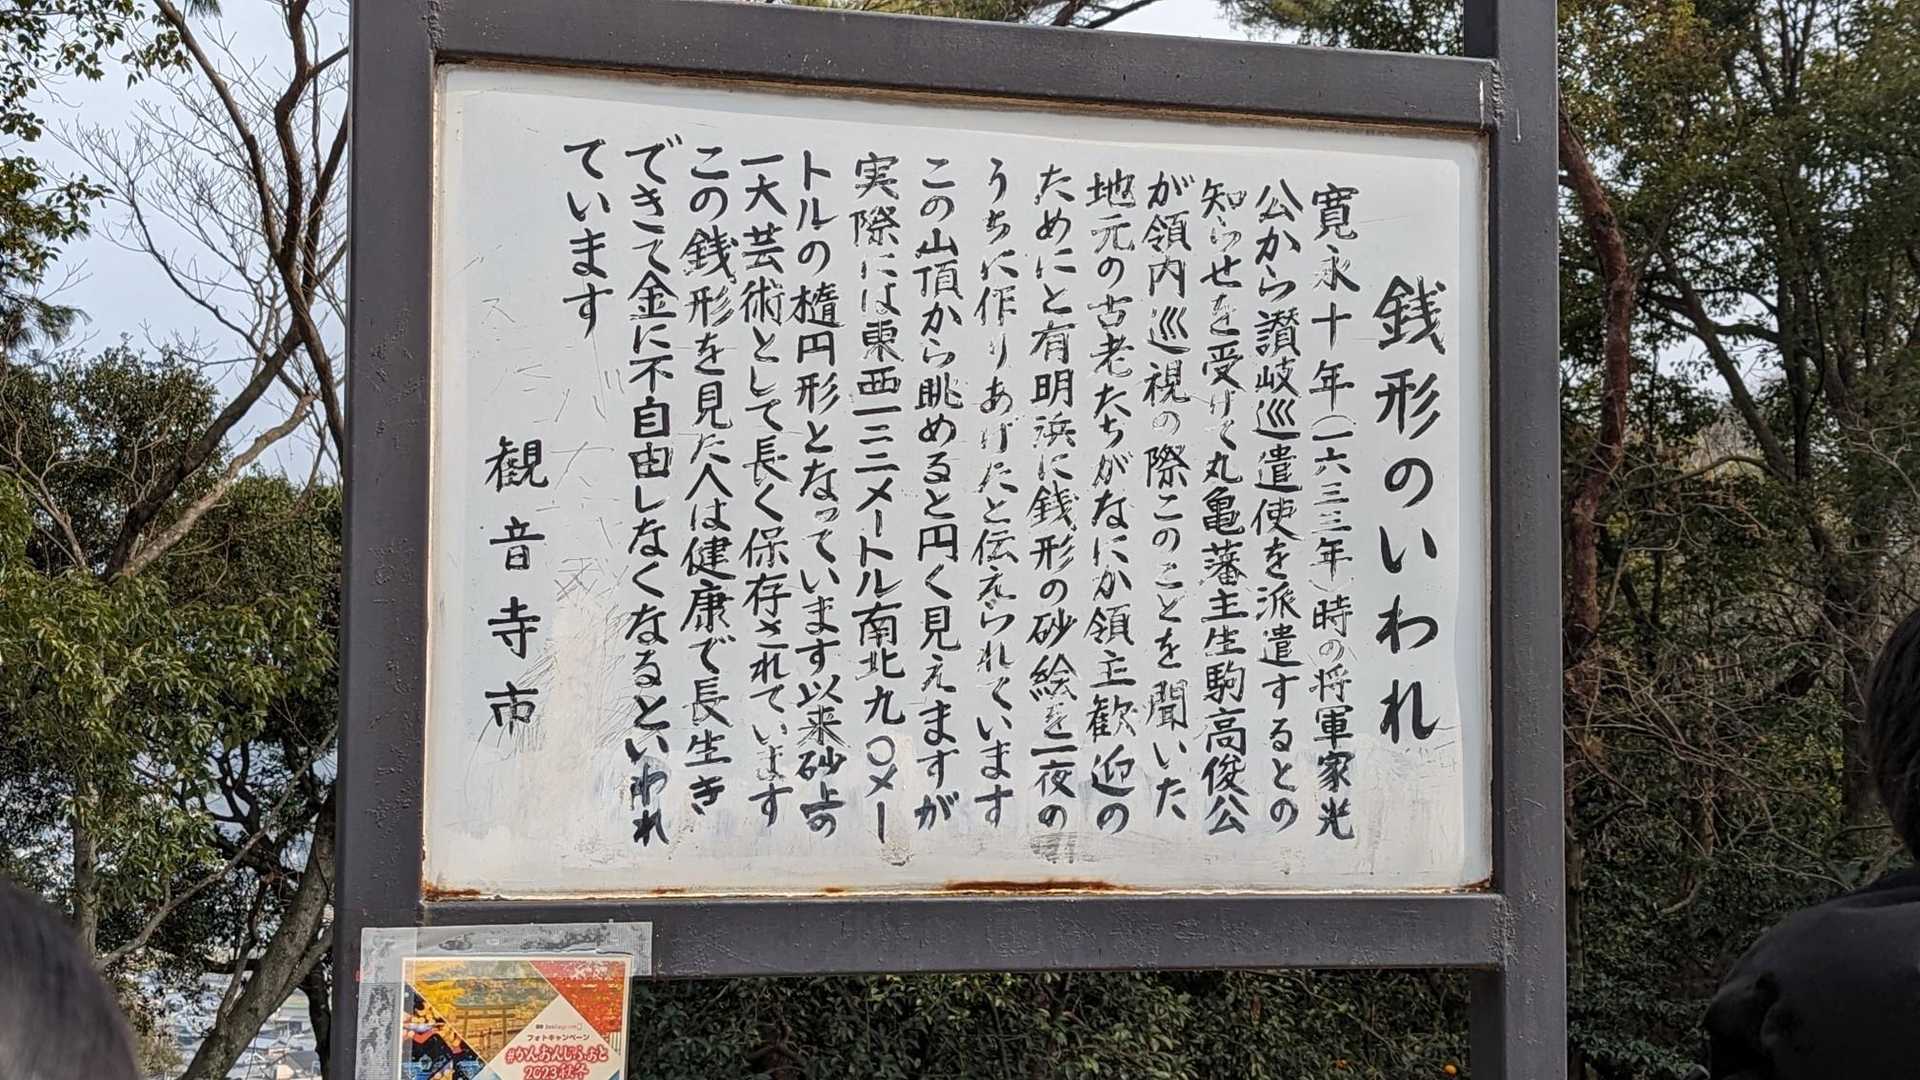 銭形のいわれ
寛永十年(一六三三年)時の将軍家光
公から讃岐巡遣使を派遣するとの
知らせを受けて丸亀藩主生駒高俊公
が領内巡視の際このことを聞いた
地元の古老たちがなにか領主歓迎の
ためにと有明浜に銭形の砂絵を一夜の
うちに作りあげたと伝えられています
この山頂から眺めると円く見えますが
実際には東西一二二メートル南北九〇メー
トルの楕円形となっています以来砂上の
一大芸術として長く保存されています
この銭形を見た人は健康で長生き
できて金に不自由しなくなるといわれ
ています
観音寺市
フォトキャンペーン
#かんおんじふぉと
2023秋冬